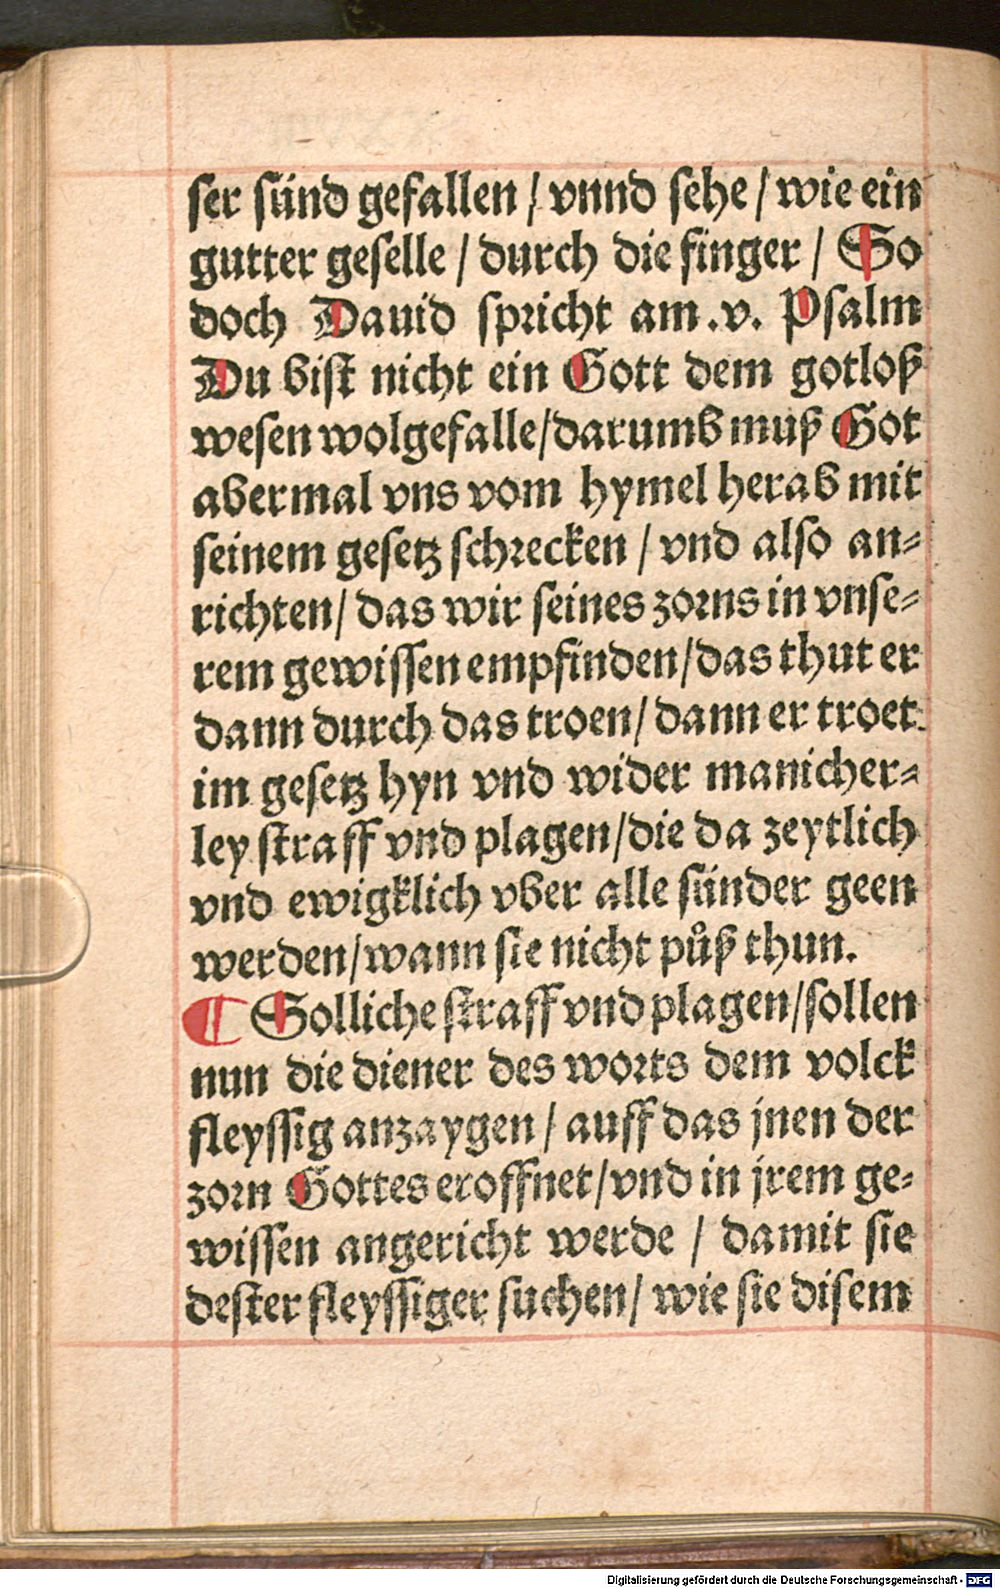 ser sünd gefallen / vnnd sehe / wie ein
gutter geselle / durch die finger / So
doch Dauid spricht am .v. Psalm
Du bist nicht ein Gott dem gotloß
wesen wolgefalle/darumb muß Got
abermal vns vom hymel herab mit
seinem gesetz schrecken / vnd also an⸗
richten/ das wir seines zorns in vnse⸗
rem gewissen empfinden/das thut er
dann durch das troen/ dann er troet
im gesetz hyn vnd wider manicher⸗
ley straff vnd plagen/die da zeytlich
vnd ewigklich vber alle sünder geen
werden/wann sie nicht půß thun.
¶ Solliche straff vnd plagen/sollen
nun die diener des worts dem volck
fleyssig anzaygen / auff das jnen der
zorn Gottes eroffnet/vnd in jrem ge⸗
wissen angericht werde / damit sie
dester fleyssiger suchen/ wie sie disem
Digitalisierung gefördert durch die Deutsche Forschungsgemeinschaft - DFG